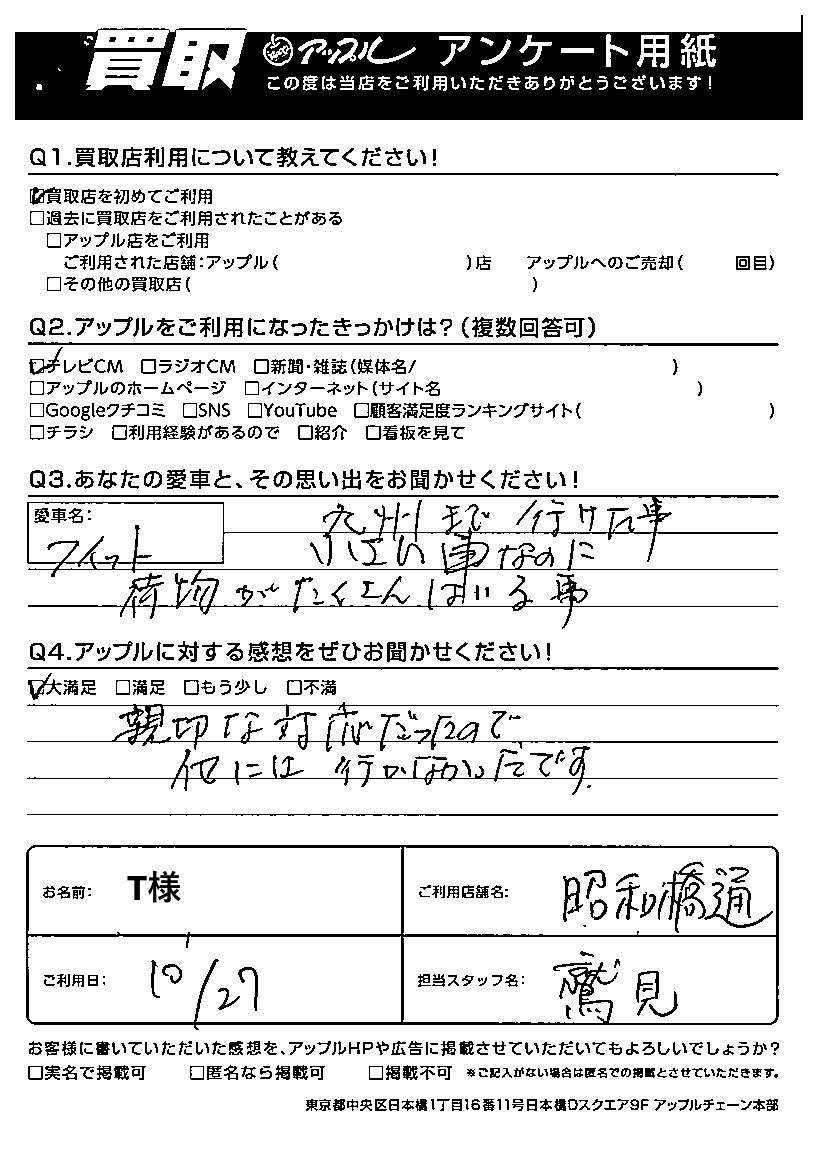 買取 アップル アンケート用紙
この度は当店をご利用いただきありがとうございます!
Q1.買取店利用について教えてください!
☑買取店を初めてご利用
□過去に買取店をご利用されたことがある
□アップル店をご利用
ご利用された店舗:アップル( )店 アップルへのご売却( 回目)
□その他の買取店( )
Q2.アップルをご利用になったきっかけは?(複数回答可)
☑テレビCM □ラジオCM □新聞・雑誌(媒体名/ )
□アップルのホームページ □インターネット(サイト名 )
□Googleクチコミ □SNS □YouTube □顧客満足度ランキングサイト( )
□チラシ □利用経験があるので □紹介 □看板を見て
Q3.あなたの愛車と、その思い出をお聞かせください!
愛車名:
フィット
九州まで行けた事
小さい車なのに
荷物がたくさんはいる事
Q4.アップルに対する感想をぜひお聞かせください!
☑大満足 □満足 □もう少し □不満
親切な対応だったので
他には行かなかったです.
お名前: T様
ご利用店舗名: 昭和橋通
ご利用日: 10/27
担当スタッフ名: 鷲見
お客様に書いていただいた感想を、アップルHPや広告に掲載させていただいてもよろしいでしょうか?
□実名で掲載可 □匿名なら掲載可 □掲載不可 ※ご記入がない場合は匿名での掲載とさせていただきます。
東京都中央区日本橋1丁目16番11号日本橋Dスクエア9F アップルチェーン本部